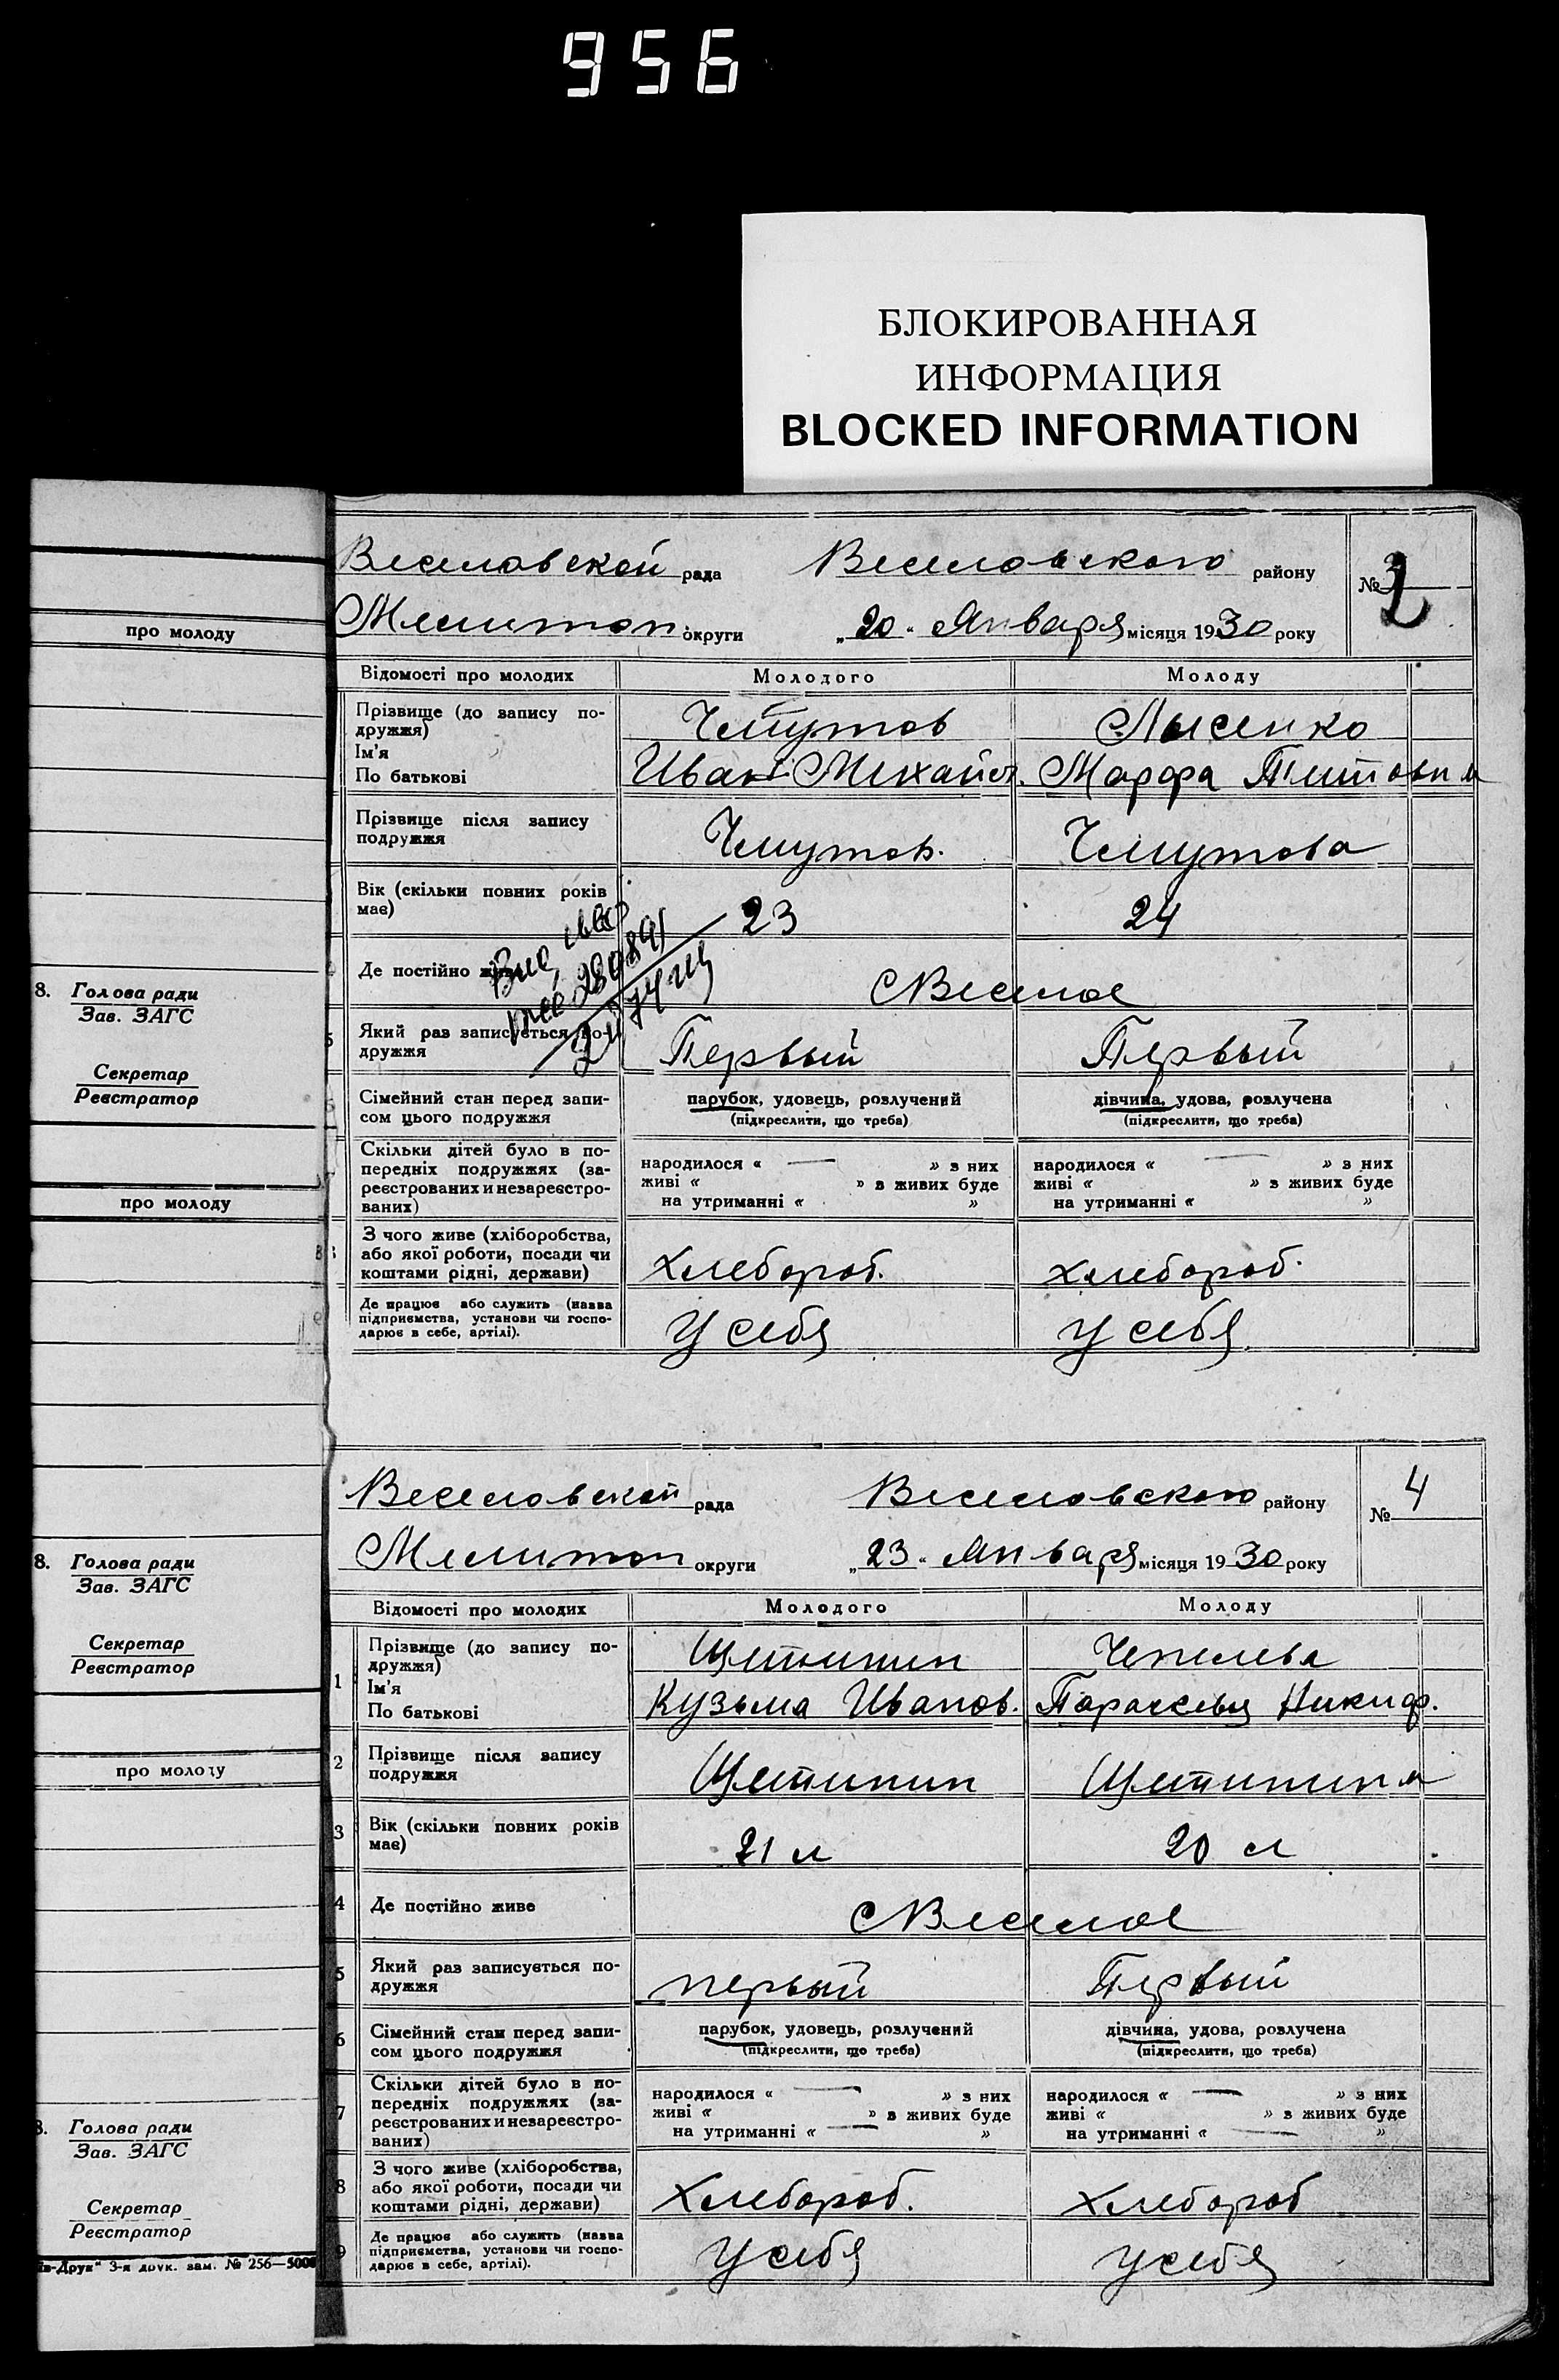 956
БЛОКИРОВАННАЯ
ИНФОРМАЦИЯ
BLOCKED INFORMATION
про молоду
8. Голова ради
Зав. ЗАГС
Секретар
Реєстратор
про молоду
8. Голова ради
Зав. ЗАГС
Секретар
Реєстратор
про молоду
8. Голова ради
Зав. ЗАГС
Секретар
Реєстратор
Друк" 3-я друк. зам. № 256—5000
Веселовской рада Веселовского району №
Мелитоп. округи „20" Января місяця 1930 року
Відомості про молодих Молодого Молоду
Прізвище (до запису по-
дружжя)
Ім'я
По батькові
Чмутов Лысенко
Иван Михайл. Марфа Титовна
Прізвище після запису
подружжя
Чмутов. Чмутова
Вік (скільки повних років
має)
23 24
Де постійно живе
С Веселое
Який раз записується по-
дружжя
Первый Первый
Сімейний стан перед запи-
сом цього подружжя
парубок, удовець, розлучений дівчина, удова, розлучена
(підкреслити, що треба) (підкреслити, що треба)
Скільки дітей було в по-
передніх подружжях (за-
реєстрованих и незареєстро-
ваних)
народилося « — » з них народилося « — » з них
живі « » з живих буде живі « » з живих буде
на утриманні « » на утриманні « »
З чого живе (хліборобства,
або якої роботи, посади чи
коштами рідні, держави)
Хлебороб. хлебороб.
Де працює або служить (назва
підприємства, установи чи госпо-
дарює в себе, артілі).
У себя у себя
Веселовской рада Веселовского району № 4
Мелитоп округи „23" Января місяця 1930 року
Відомості про молодих Молодого Молоду
1 Прізвище (до запису по-
дружжя)
Ім'я
По батькові
Щетинин Чепелева
Кузьма Иванов. Параскевья Никиф.
2 Прізвище після запису
подружжя
Щетинин Щетинина
3 Вік (скільки повних років
має)
21 л 20 л
4 Де постійно живе
С Веселое
5 Який раз записується по-
дружжя
первый Первый
6 Сімейний стан перед запи-
сом цього подружжя
парубок, удовець, розлучений дівчина, удова, розлучена
(підкреслити, що треба) (підкреслити, що треба)
7 Скільки дітей було в по-
передніх подружжях (за-
реєстрованих и незареєстро-
ваних)
народилося « — » з них народилося « — » з них
живі « » з живих буде живі « » з живих буде
на утриманні « — » на утриманні « — »
8 З чого живе (хліборобства,
або якої роботи, посади чи
коштами рідні, держави)
Хлебороб. хлебороб
9 Де працює або служить (назва
підприємства, установи чи госпо-
дарює в себе, артілі).
У себя у себя